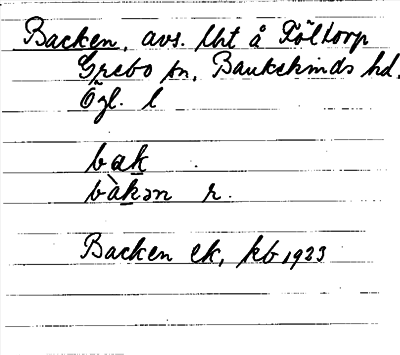 Backen, avs. lht å Föltorp
Grebo sn, Bankekinds hd.
Ögl. l
bak
bàkən r.
Backen ek, kb 1923